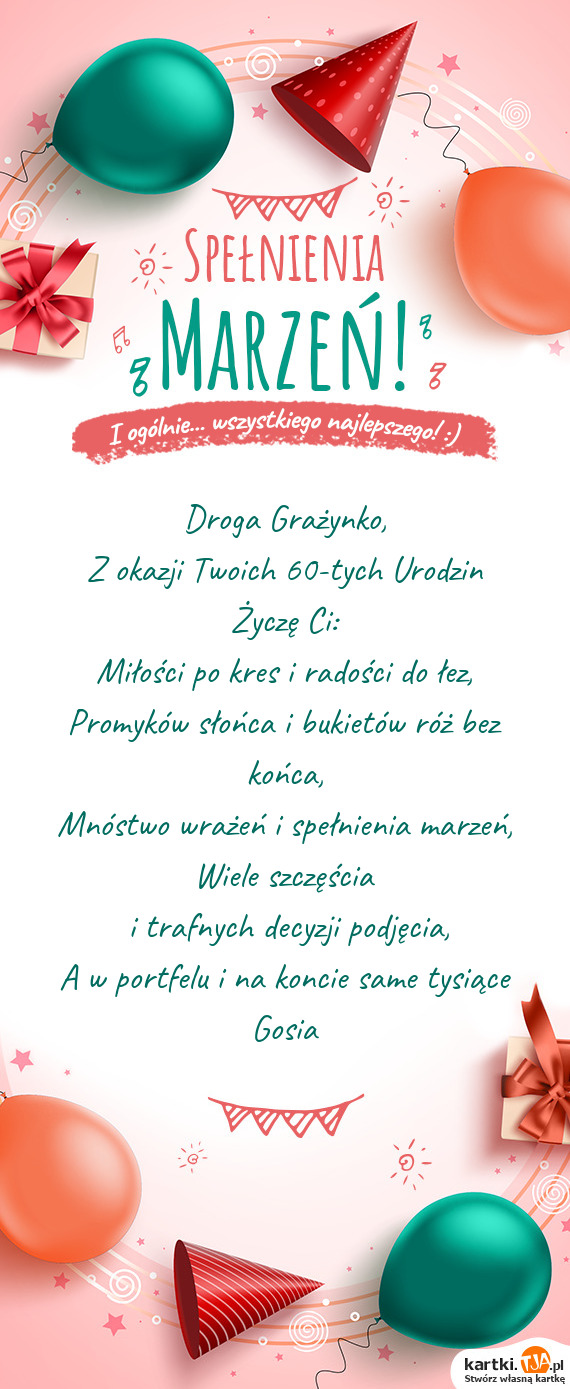 Spełnienia
Marzeń!
I ogólnie... wszystkiego najlepszego! :)
Droga Grażynko,
Z okazji Twoich 60-tych Urodzin
Życzę Ci:
Miłości po kres i radości do łez,
Promyków słońca i bukietów róż bez
końca,
Mnóstwo wrażeń i spełnienia marzeń,
Wiele szczęścia
i trafnych decyzji podjęcia,
A w portfelu i na koncie same tysiące
Gosia
kartki.TJA.pl
Stwórz własną kartkę